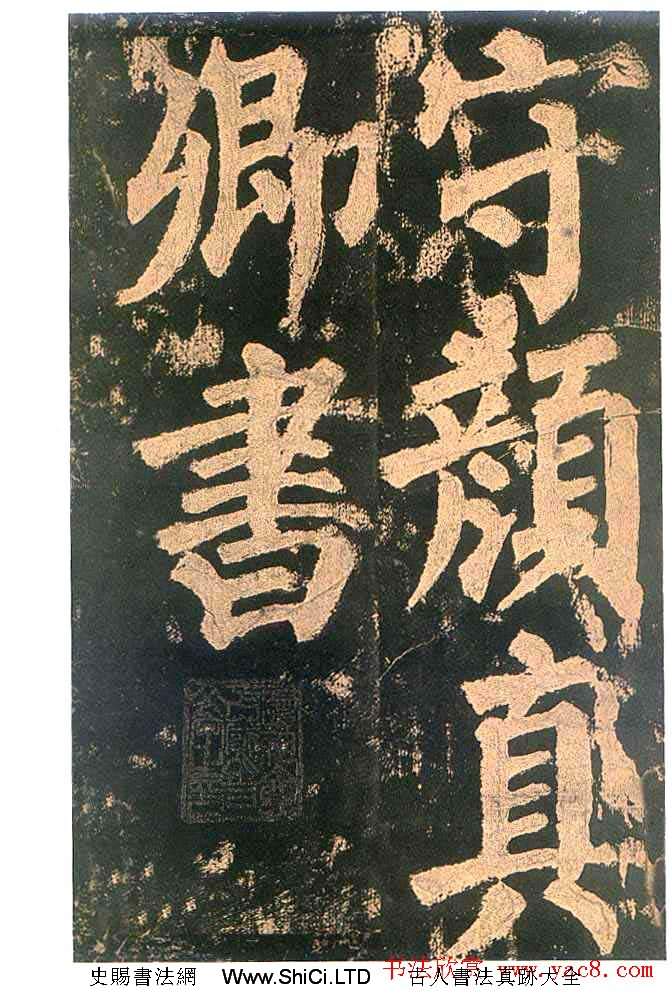 守顏真
卿書
史賜書法網 Www.ShiCi.LTD 古人書法真跡大全
书法欣赏 www.yac8.com